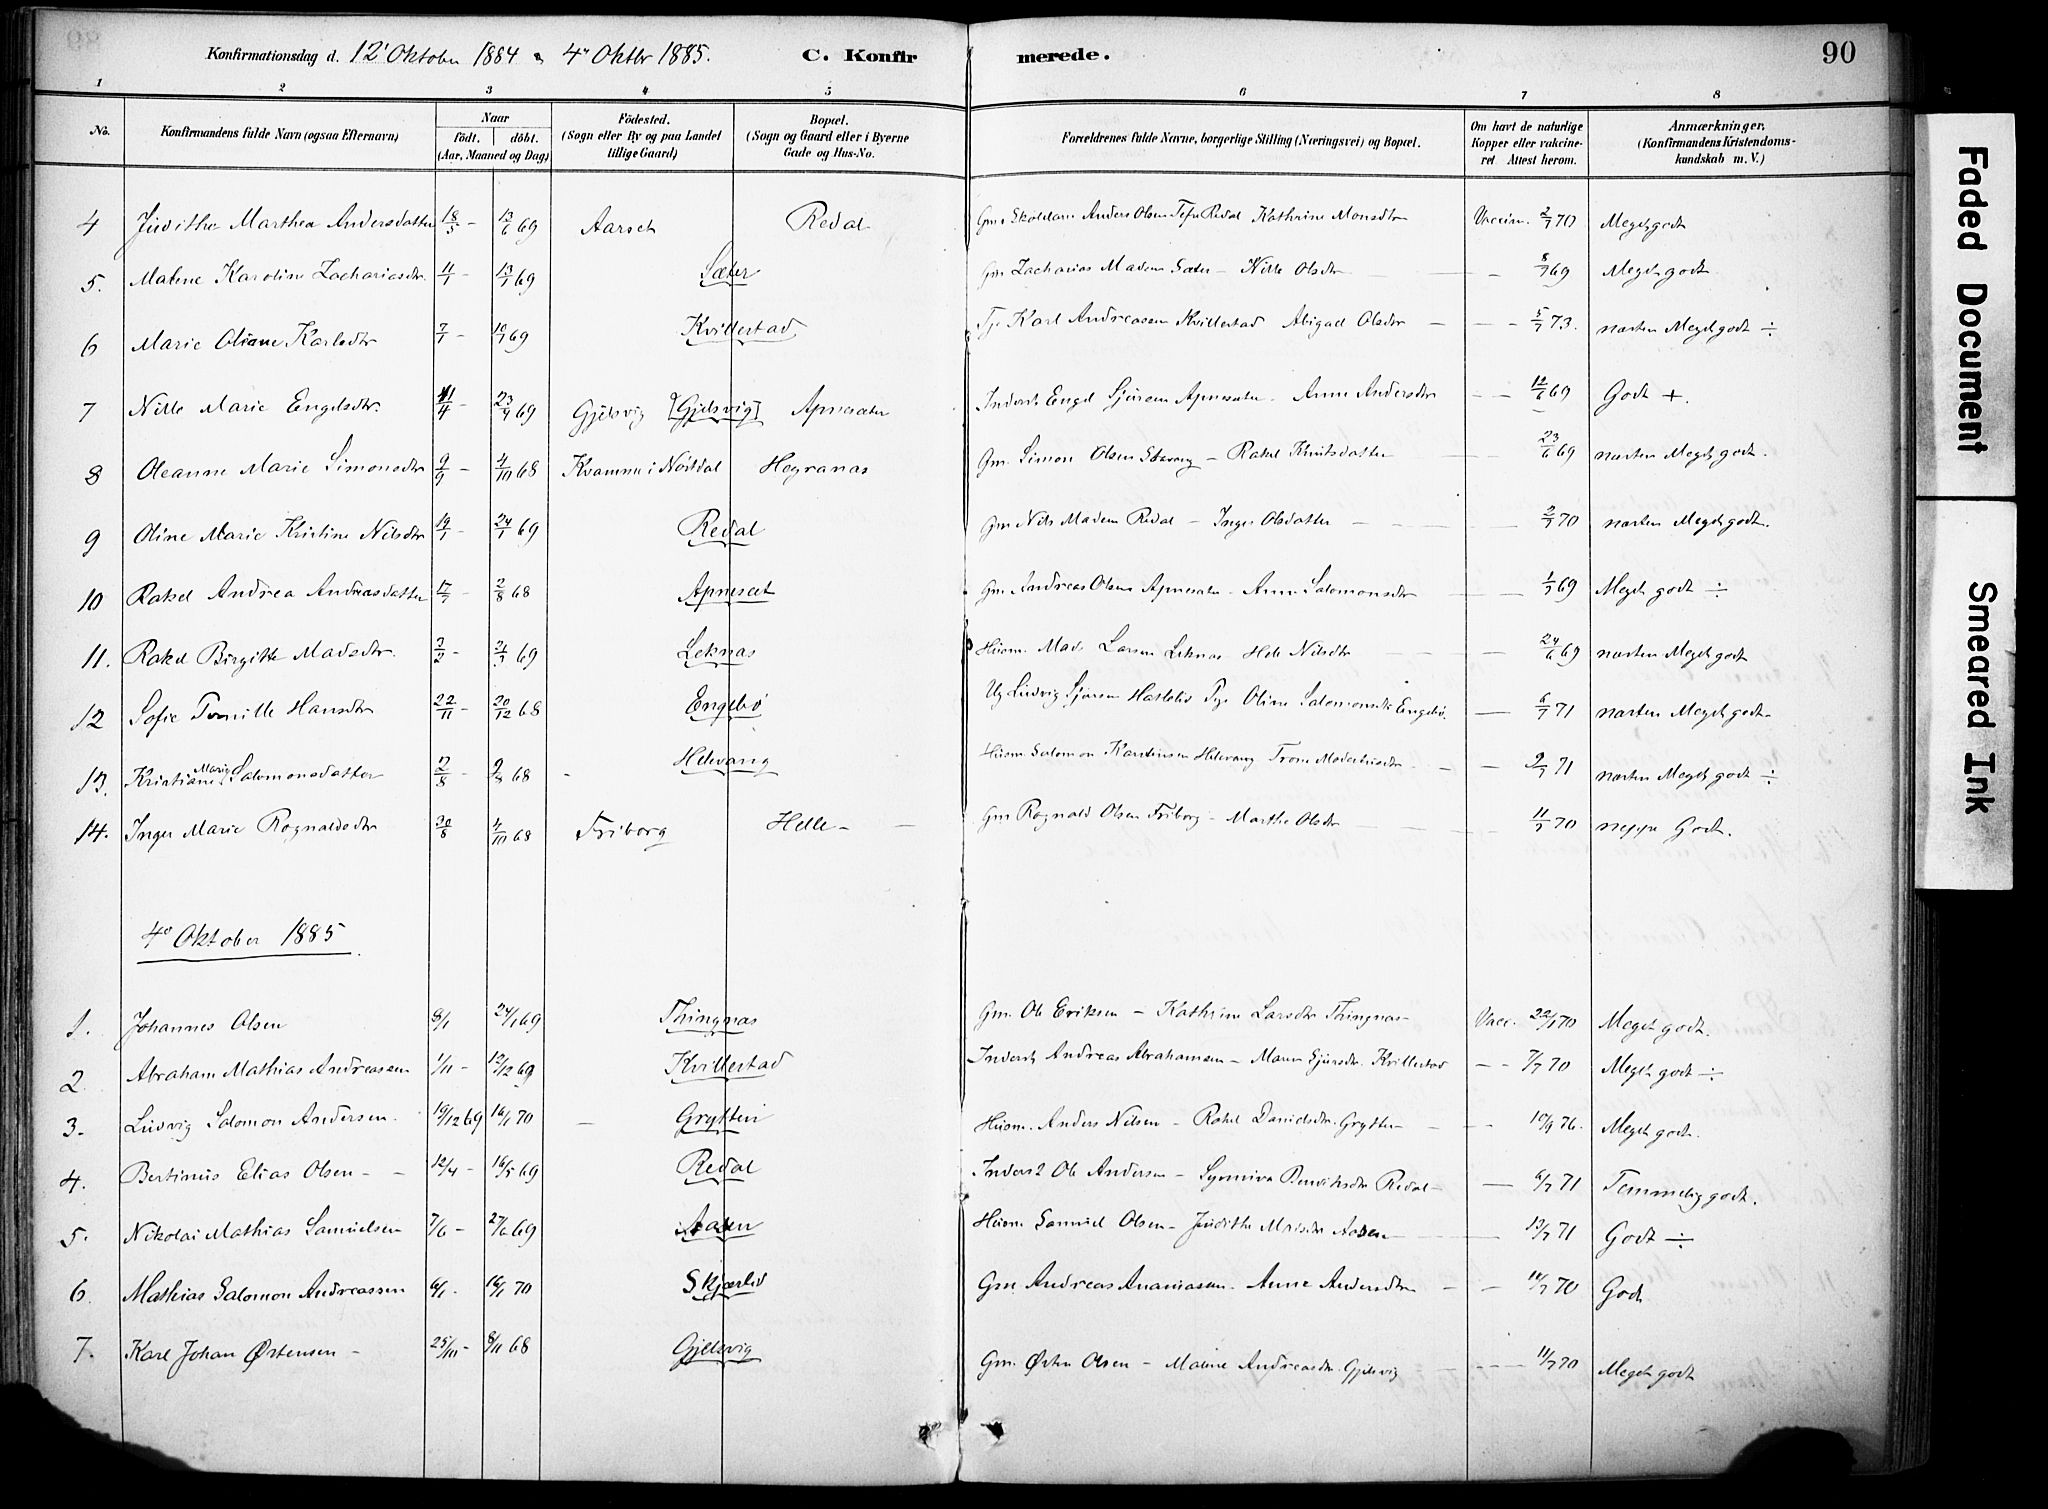 Konfirmationsdag d. 12' Oktober 1884 & 4de Oktbr 1885. C. Konfirmerede. 90
1 2 3 4 5 6 7 8
No. Konfirmandens fulde Navn (ogsaa Efternavn) Naar födt. döbt. (Aar, Maaned og Dag) Födested. (Sogn eller By og paa Landet tillige Gaard) Bopæl. (Sogn og Gaard eller i Byerne Gade og Hus-No. Forældrenes fulde Navne, borgerlige Stilling (Næringsvei) og Bopæl. Om havt de naturlige Kopper eller vakcineret Attest herom. Anmærkninger. (Konfirmandens Kristendomskundskab m. V.)
4 Judithe Marthea Andersdatter 18/5 - 13/6 69 Aarset Redal Gm Skoldam Anders Olsen Redal Kathrine Monsdtr Vaccin. 2/7 70 Meget godt
5. Malene Karoline Zachariasdr. 11/1 - 13/1 69 Sæter Gm Zacharias Madsen Sæter - Nille Olsdtr - 8/7 69 Meget godt
6 Marie Oliane Karlsdtr 7/7 - 10/7 69 Kvillestad Tj. Karl Andreasen Kvillestad Abigael Olsdtr - - - 5/7 73. næsten Meget godt ÷
7 Nille Marie Engelsdtr. 11/4 - 23/4 69 Gjelsvig [Gjelsvig] Apneseter Inderst Engel Sjursen Apneseter - Anne Andersdtr - - 12/6 69 Godt +.
8 Oleanne Marie Simonsdtr 9/9 - 4/10 68 Kvamme i Nördal Hegranas Gm. Simon Olsen - Rakel Knutsdatter 23/6 69 næsten Meget godt.
9 Oline Marie Kristine Nilsdtr 19/1 - 24/1 69 Redal Gm Nils Madsen Redal - Inger Olsdatter - 2/7 70 næsten Meget godt.
10 Rakel Andrea Andreasdatter 17/7 - 2/8 68 Apneset Gm Andreas Olsen Apneseter - Anne Salomonsdtr - 1/7 69 Meget godt ÷
11. Rakel Birgitte Madsdtr. 2/2 - 69 Leknas Husm. Mads Larsen Leknas Nilsdtr - 24/6 69 næsten Meget godt
12 Sofie Tomille Hansdtr 22/11 - 20/12 68 Engebö Ug Ludvig Sjursen Hatlelid Pige Oline Salomonsdtr Engebö. - 6/7 71 næsten Meget godt.
13. Kristiane Marie Salomonsdatter 2/8 9/8 68 - Helvang Husm. Salomon Karstensen Helvang - - 2/7 71 næsten Meget godt ÷
14. Inger Marie Rognaldsdtr 30/8 4/10 68 Friborg Helle - Gm Rognald Olsen Friborg - Marthe Olsdtr 11/7 70 neppe Godt.
4de Oktober 1885
1. Johannes Olsen 8/1 24/1 69 Thingnas Gm. Ole Eriksen - Kathrine Larsdtr Thingnas - Vacc. 22/1 70 Meget godt.
2 Abraham Mathias Andreasen 1/11 - 12/12 69 Kvillestad Inderst Andreas Abrahamsen - Maren Sjursdtr. Kvillestad - - 7/7 70 Meget godt ÷
3. Ludvig Salomon Andersen. 19/12 69 16/1 70 - Grytten Husm. Anders Nilsen - Rakel Danielsdtr. Grytten - - 10/9 76. Meget godt.
4. Bertinus Elias Olsen - - 12/4 - 16/5 69 Redal Inderst Ole Andersen - Synniva Bendiksdtr Redal - - 6/7 71 Temmelig godt.
5. Nikolai Mathias Samuelsen 7/6 - 27/6 69 Aasen Husm Samuel Olsen - Judithe Aasen - 13/7 71 Godt ÷
6 Mathias Salomon Andreassen 6/1 - 16/1 70 Skjærlid Gm Andreas Ananiasen - Anne Andersdtr - - 11/7 70 Godt
7. Karl Johan Østensen - 25/10 - 8/11 68 Gjelsvig Gm. Østen Olsen - Malene Andreasdtr. Gjelsvig - - - 11/7 70 Meget godt
Faded Document
Smeared Ink